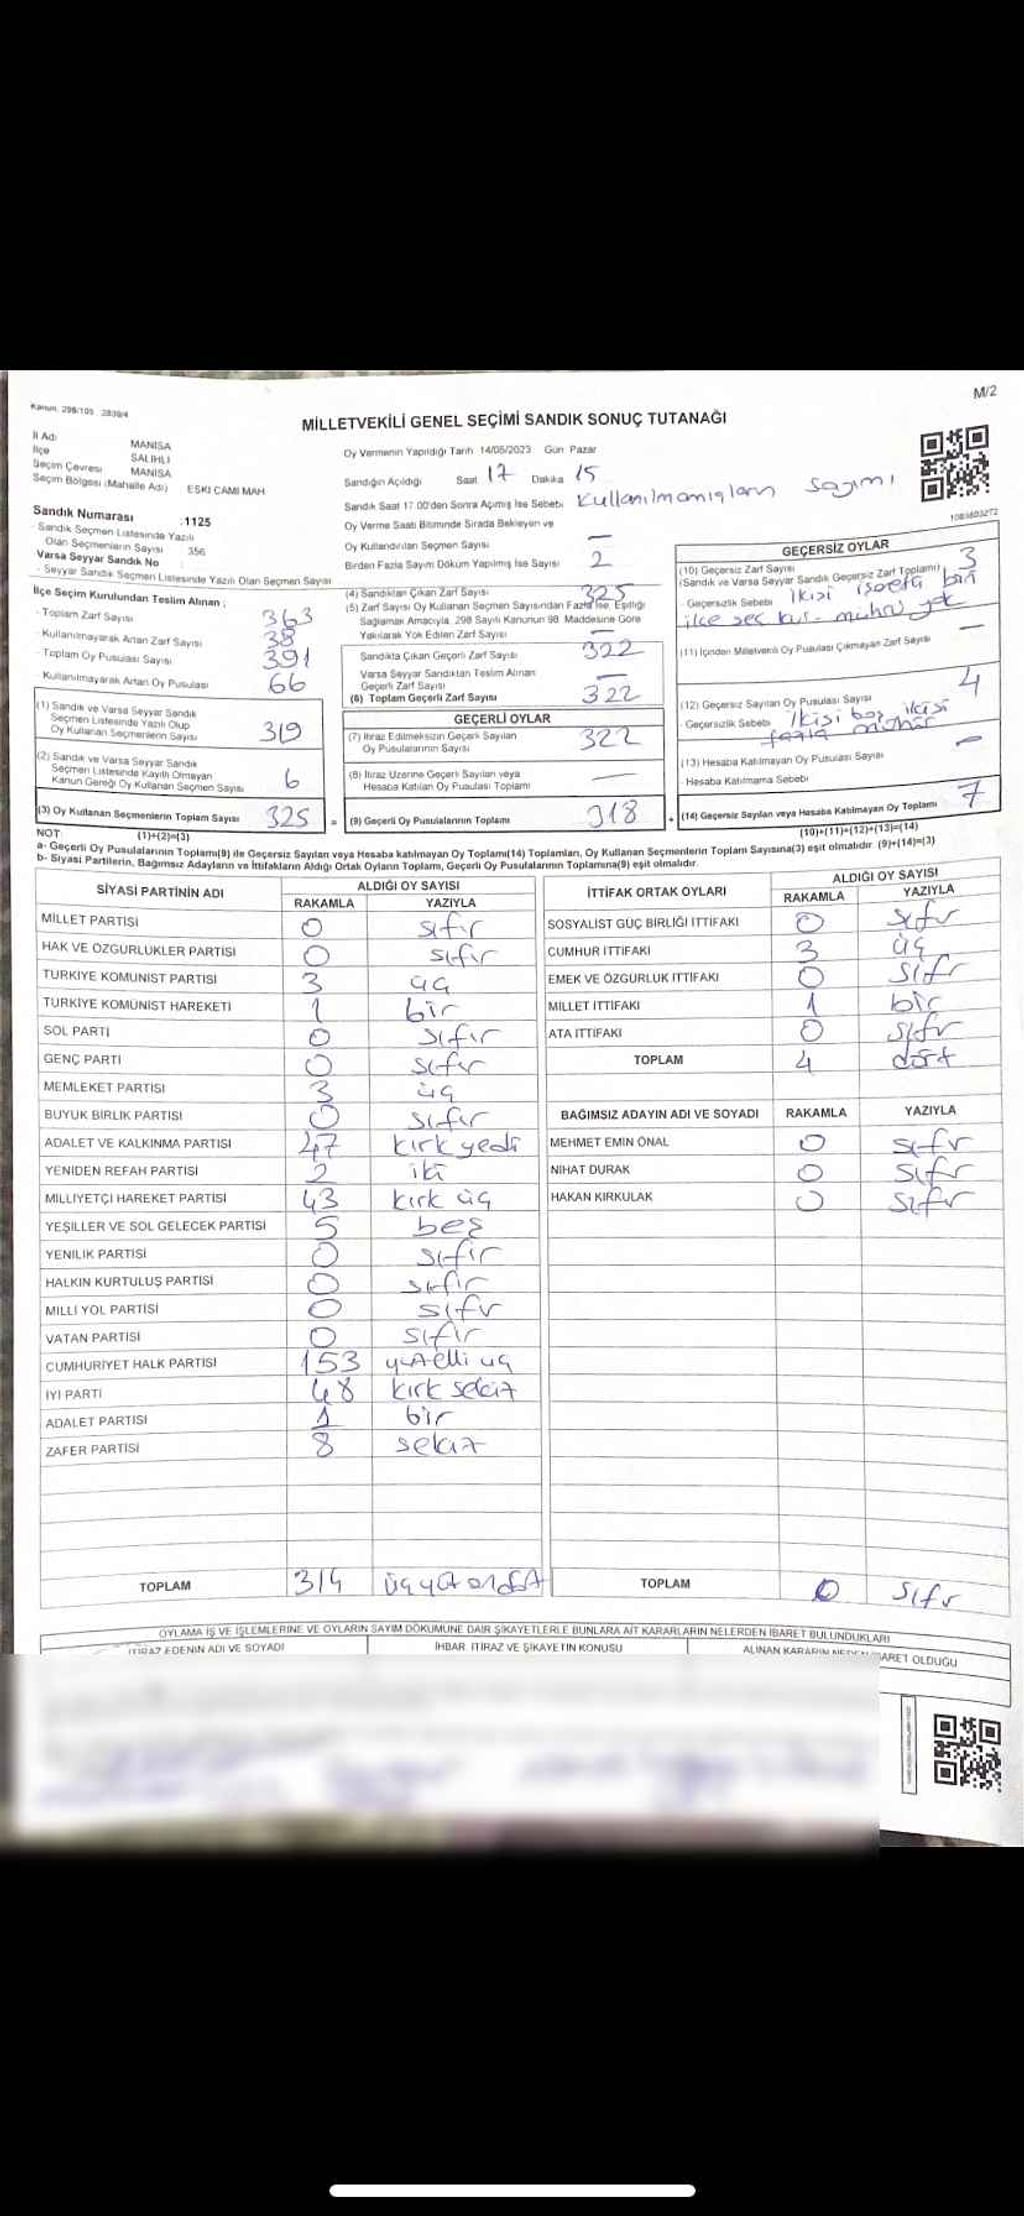 M/2
Kanun. 298/105 2839/4
MİLLETVEKİLİ GENEL SEÇİMİ SANDIK SONUÇ TUTANAĞI
İl Adı MANİSA
İlçe SALİHLİ
Seçim Çevresi MANİSA
Seçim Bölgesi (Mahalle Adı) ESKİ CAMİ MAH.
Sandık Numarası :1125
- Sandık Seçmen Listesinde Yazılı
Olan Seçmenlerin Sayısı 356
Varsa Seyyar Sandık No
- Seyyar Sandık Seçmen Listesinde Yazılı Olan Seçmen Sayısı
Oy Vermenin Yapıldığı Tarih 14/05/2023 Gün Pazar
Sandığın Açıldığı Saat 17 Dakika 15
Sandık Saat 17.00'den Sonra Açılmış İse Sebebi Kullanılmamışların Sayımı
Oy Verme Saati Bitiminde Sırada Bekleyen ve
Oy Kullandırılan Seçmen Sayısı —
Birden Fazla Sayım Döküm Yapılmış İse Sayısı 2
1083603272
İlçe Seçim Kurulundan Teslim Alınan ;
- Toplam Zarf Sayısı 363
- Kullanılmayarak Artan Zarf Sayısı 38
- Toplam Oy Pusulası Sayısı 391
- Kullanılmayarak Artan Oy Pusulası 66
(1) Sandık ve Varsa Seyyar Sandık
Seçmen Listesinde Yazılı Olup
Oy Kullanan Seçmenlerin Sayısı 319
(2) Sandık ve Varsa Seyyar Sandık
Seçmen Listesinde Kayıtlı Olmayan
Kanun Gereği Oy Kullanan Seçmen Sayısı 6
(3) Oy Kullanan Seçmenlerin Toplam Sayısı 325 =
(1)+(2)=(3)
(4) Sandıktan Çıkan Zarf Sayısı 325
(5) Zarf Sayısı Oy Kullanan Seçmen Sayısından Fazla İse, Eşitliği
Sağlamak Amacıyla, 298 Sayılı Kanunun 98. Maddesine Göre
Yakılarak Yok Edilen Zarf Sayısı —
Sandıkta Çıkan Geçerli Zarf Sayısı 322
Varsa Seyyar Sandıktan Teslim Alınan
Geçerli Zarf Sayısı —
(6) Toplam Geçerli Zarf Sayısı 322
GEÇERLİ OYLAR
(7) İtiraz Edilmeksizin Geçerli Sayılan
Oy Pusulalarının Sayısı 322
(8) İtiraz Üzerine Geçerli Sayılan veya
Hesaba Katılan Oy Pusulası Toplamı —
(9) Geçerli Oy Pusulalarının Toplamı 318 +
GEÇERSİZ OYLAR
(10) Geçersiz Zarf Sayısı 3
(Sandık ve Varsa Seyyar Sandık Geçersiz Zarf Toplamı)
- Geçersizlik Sebebi ikisi işaretli biri
ilçe seç kur. mührü yok
(11) İçinden Milletvekili Oy Pusulası Çıkmayan Zarf Sayısı —
(12) Geçersiz Sayılan Oy Pusulası Sayısı 4
- Geçersizlik Sebebi ikisi boş ikisi
fazla mühür
(13) Hesaba Katılmayan Oy Pusulası Sayısı —
- Hesaba Katılmama Sebebi
(14) Geçersiz Sayılan veya Hesaba Katılmayan Oy Toplamı 7
(10)+(11)+(12)+(13)=(14)
NOT:
a- Geçerli Oy Pusulalarının Toplamı(9) ile Geçersiz Sayılan veya Hesaba katılmayan Oy Toplamı(14) Toplamları, Oy Kullanan Seçmenlerin Toplam Sayısına(3) eşit olmalıdır (9)+(14)=(3)
b- Siyasi Partilerin, Bağımsız Adayların ve İttifakların Aldığı Ortak Oyların Toplamı, Geçerli Oy Pusulalarının Toplamına(9) eşit olmalıdır.
SİYASİ PARTİNİN ADI ALDIĞI OY SAYISI
RAKAMLA YAZIYLA
MİLLET PARTİSİ 0 sıfır
HAK VE ÖZGÜRLÜKLER PARTİSİ 0 sıfır
TÜRKİYE KOMÜNİST PARTİSİ 3 üç
TÜRKİYE KOMÜNİST HAREKETİ 1 bir
SOL PARTİ 0 sıfır
GENÇ PARTİ 0 sıfır
MEMLEKET PARTİSİ 3 üç
BÜYÜK BİRLİK PARTİSİ 0 sıfır
ADALET VE KALKINMA PARTİSİ 47 kırk yedi
YENİDEN REFAH PARTİSİ 2 iki
MİLLİYETÇİ HAREKET PARTİSİ 43 kırk üç
YEŞİLLER VE SOL GELECEK PARTİSİ 5 beş
YENİLİK PARTİSİ 0 sıfır
HALKIN KURTULUŞ PARTİSİ 0 sıfır
MİLLİ YOL PARTİSİ 0 sıfır
VATAN PARTİSİ 0 sıfır
CUMHURİYET HALK PARTİSİ 153 yüz elli üç
İYİ PARTİ 48 kırk sekiz
ADALET PARTİSİ 1 bir
ZAFER PARTİSİ 8 sekiz
TOPLAM 314 üç yüz on dört
İTTİFAK ORTAK OYLARI ALDIĞI OY SAYISI
RAKAMLA YAZIYLA
SOSYALİST GÜÇ BİRLİĞİ İTTİFAKI 0 sıfır
CUMHUR İTTİFAKI 3 üç
EMEK VE ÖZGÜRLÜK İTTİFAKI 0 sıfır
MİLLET İTTİFAKI 1 bir
ATA İTTİFAKI 0 sıfır
TOPLAM 4 dört
BAĞIMSIZ ADAYIN ADI VE SOYADI RAKAMLA YAZIYLA
MEHMET EMİN ÖNAL 0 sıfır
NİHAT DURAK 0 sıfır
HAKAN KIRKULAK 0 sıfır
TOPLAM 0 sıfır
OYLAMA İŞ VE İŞLEMLERİNE VE OYLARIN SAYIM DÖKÜMÜNE DAİR ŞİKAYETLERLE BUNLARA AİT KARARLARIN NELERDEN İBARET BULUNDUKLARI
İTİRAZ EDENİN ADI VE SOYADI İHBAR, İTİRAZ VE ŞİKAYETİN KONUSU ALINAN KARARIN NEDEN İBARET OLDUĞU